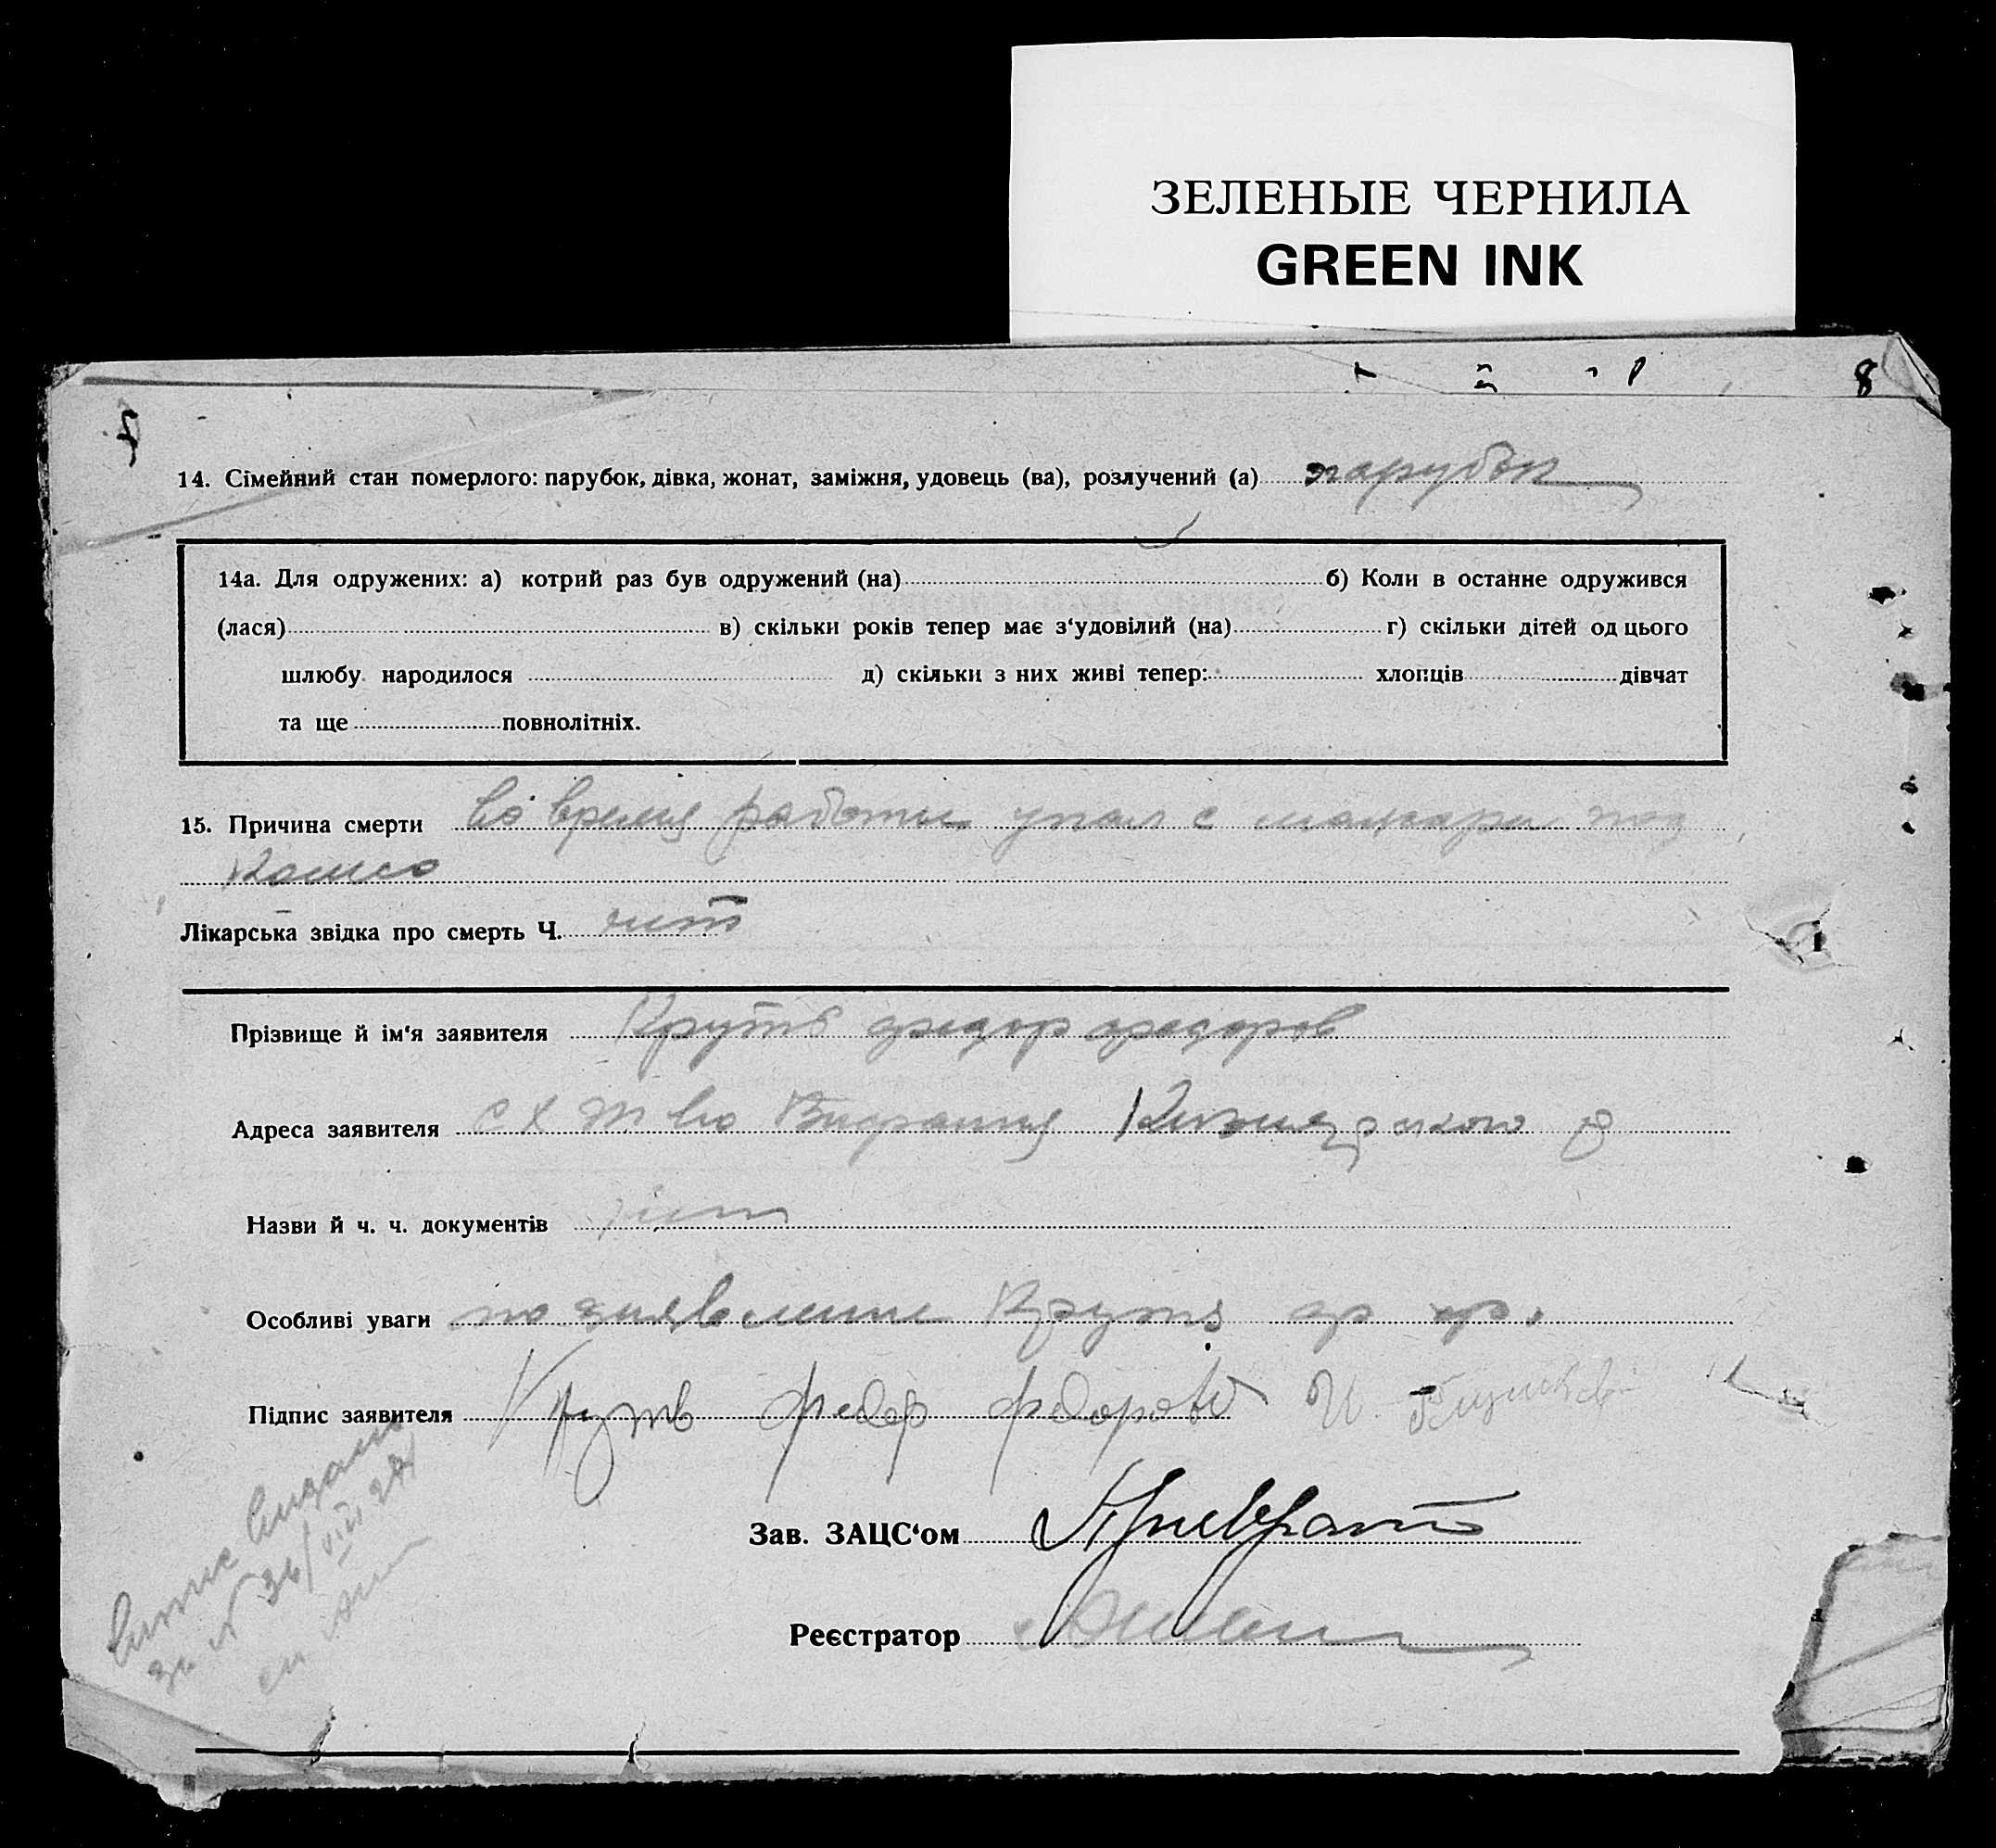 ЗЕЛЕНЫЕ ЧЕРНИЛА
GREEN INK
8
14. Сімейний стан померлого: парубок, дівка, жонат, заміжня, удовець (ва), розлучений (а) парубок
14а. Для одружених: а) котрий раз був одружений (на) б) Коли в останнє одружився
(лася) в) скільки років тепер має з‘удовілий (на) г) скільки дітей од цього
шлюбу народилося д) скільки з них живі тепер: хлопців дівчат
та ще повнолітніх.
15. Причина смерти во время работы упал с мажари под
колесо
Лікарська звідка про смерть Ч. нит
Прізвище й ім‘я заявителя Крутъ федор федоров
Адреса заявителя с х
Назви й ч. ч. документів нит
Особливі уваги по заявление Крутя ф ф.
Підпис заявителя Крутв федор федоров
Зав. ЗАЦС‘ом
Реєстратор